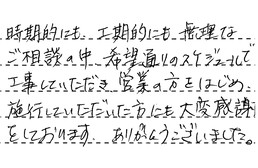 時期的にも、工期的にも無理な
ご相談の中、希望通りのスケジュールで
工事していただき、営業の方をはじめ、
施行していただいた方にも大変感謝
をしております。ありがとうございました。